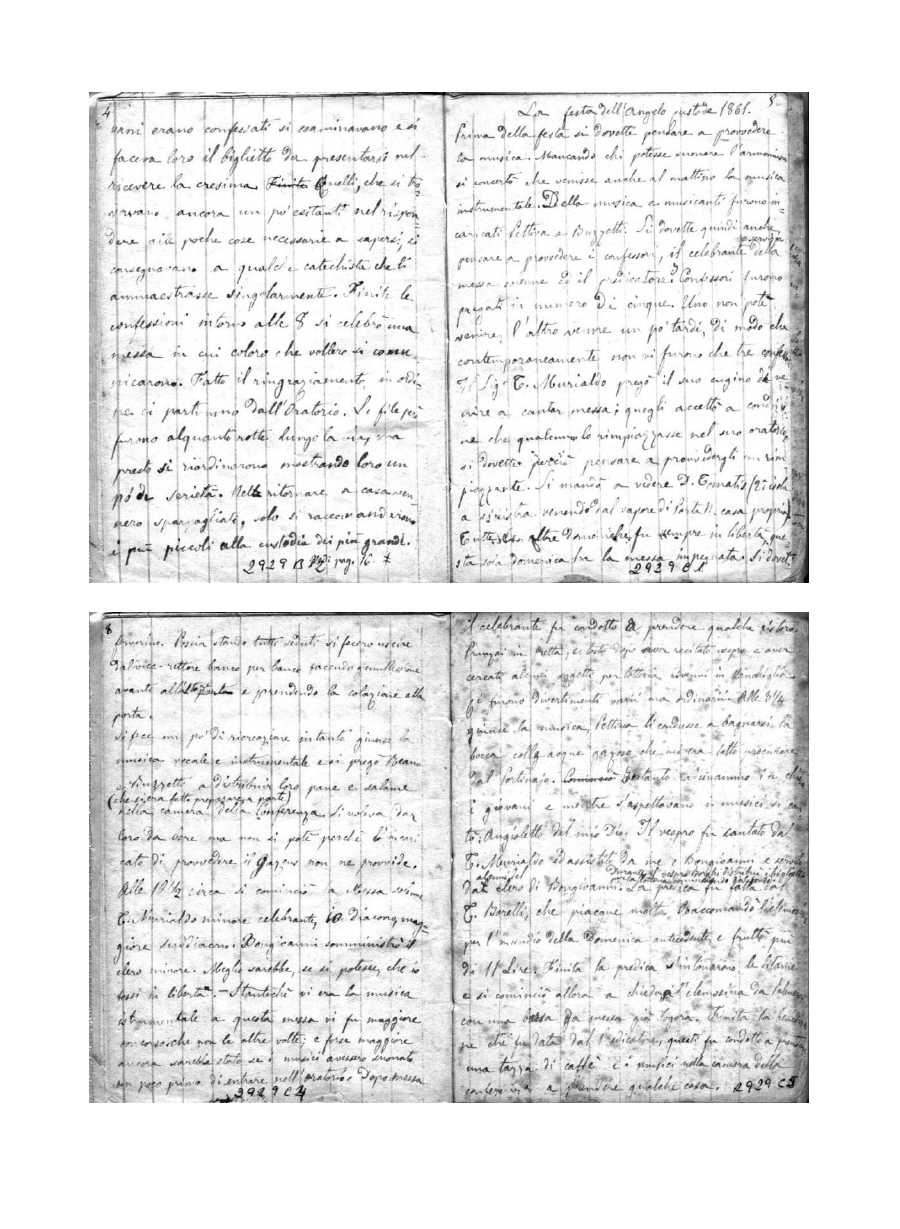 4
erano confessati si esaminavano e si
faceva loro il biglietto da presentarsi nel
ricevere la cresima. Finita Quelli, che si tro
vavano ancora un pò esitanti nel rispon
dere alle poche cose necessarie a sapersi, si
consegnavano a qualche catechista che li
ammaestrasse singolarmente. Finite le
confessioni intorno alle 8 si celebrò una
messa in cui coloro che vollero si comu
nicarono. Fatto il ringraziamento, in ordi
ne ci partimmo dall'Oratorio. Le file però
furono alquanto rotte lungo la via, ma
presto si riordinarono mostrando loro un
pò di serietà. Nel ritornare a casa ven
nero sparpagliati, solo si raccomandarono
i più piccoli alla custodia dei più grandi.
2929 B 12 Vedi pag. 16
5.
La festa dell'Angelo custode 1861.
Prima della festa si dovette pensare a provvedere
la musica. Mancando chi potesse suonare l'armonium
si concertò che venisse anche al mattino la musica
instrumentale. Della musica e musicanti furono in
caricati Pettiva e Buzzetti. Si dovette quindi anche
pensare a provvedere i confessori, il celebrante della
messa ed il predicatore. Confessori furono
pregati in numero di cinque. Uno non potè
venire, l'altro venne un po' tardi, di modo che
contemporaneamente non vi furono che tre confess
Il Sigr T. Murialdo pregò il suo cugino di ve
nire a cantar messa; quegli accettò a condizio
ne che qualcuno lo rimpiazzasse nel suo oratorio,
si dovette perciò pensare a provvedergli un rim
piazzante. Si mandò a vedere D. Tomatis (2a isola
a sinistra venendo dal vapore di Porta N. casa propria)
Tutte le altre domeniche fu sempre in libertà, que
sta sola domenica ha la messa impegnata. Si dovet-
2929 C 1
8
Severino. Poscia stando tutti seduti si fecero uscire
dal vice-rettore banco per banco facendo genuflessione
avanti all'altare e prendendo la colazione alla
porta.
Si fece un pò di ricreazione intanto giunse la
musica vocale e instrumentale e si pregò Reano
e Buzzetti a distribuir loro pane e salame
(che si era fatto preparare a parte)
nella camera della conferenza. Si voleva dar
loro da bere ma non si potè perchè l'incari
cato di provvedere il gazeus non ne provvide.
Alle 10 1/2 circa si cominciò la Messa
T. Murialdo minore celebrante, io diacono, mag=
giore suddiacono. Bongioanni somministrò il
clero minore. Meglio sarebbe, se si potesse, che io
fossi in libertà. - Stantechè vi era la musica
istrumentale a questa messa vi fu maggiore
concorso che non le altre volte; e forse maggiore
ancora sarebbe stato se i musici avessero suonato
un poco prima di entrare nell'oratorio. Dopo messa
2929 C 4
il celebrante fu condotto a prendere qualche ristoro.
Pranzai in fretta, e tosto dopo aver recitato vespro e aver
cercato alcuni oggetti per lotteria venni in Vanchiglia.
Ci furono divertimenti varii ma ordinarii. Alle 3 1/4
giunse la musica, Pettiva li condusse a bagnarsi la
bocca colle acque gazose che mi era fatto procurare
dal portinajo. Cominciò Intanto racimammo in chiesa
i giovani e mentre s'aspettavano i musici si can
tò; Angioletti del mio Dio. Il vespro fu cantato dal
T. Murialdo ed assistito da me e Bongioanni e servito
dal clero di Bongioanni. La predica fu fatta dal
T. Borelli, che piacque molto. Raccomandò l'elemosina
per l'incendio della Domenica antecedente, e fruttò più
di 11 Lire. Finita la predica s'intonarono le litanie
e si cominciò allora a chieder l'elemosina
con una borsa da messa già logora. Finita la benedizio
ne che fu data dal Predicatore, questi fu condotto a prender
una tazza di caffè e i musici nella camera della
conferenza a prendere qualche cosa.
2929 C 5